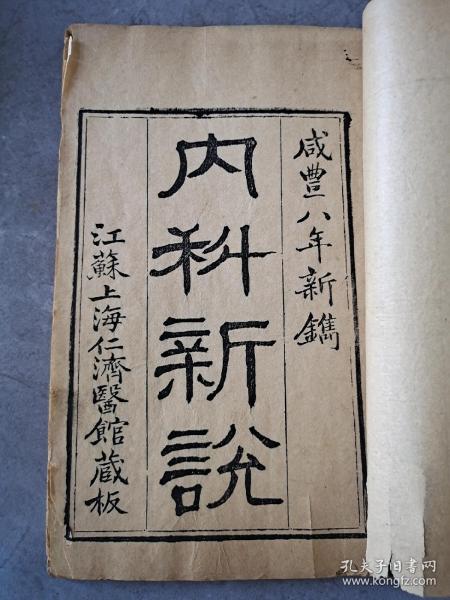 咸豐八年新鐫
內科新說
江蘇上海仁濟醫館藏板
孔夫子旧书网
www.kongfz.com